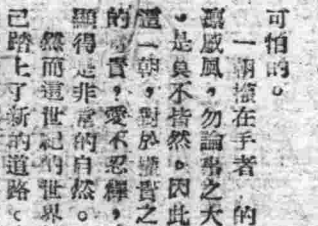 可怕的。
一朝權在手者,的
凛威風,勿論事之大
。是莫不皆然。因此
這一朝,對於權貴之
的富貴,愛不忍釋,
顯得是非常的自然。
然而這世紀的世界
已踏上了新的道路。